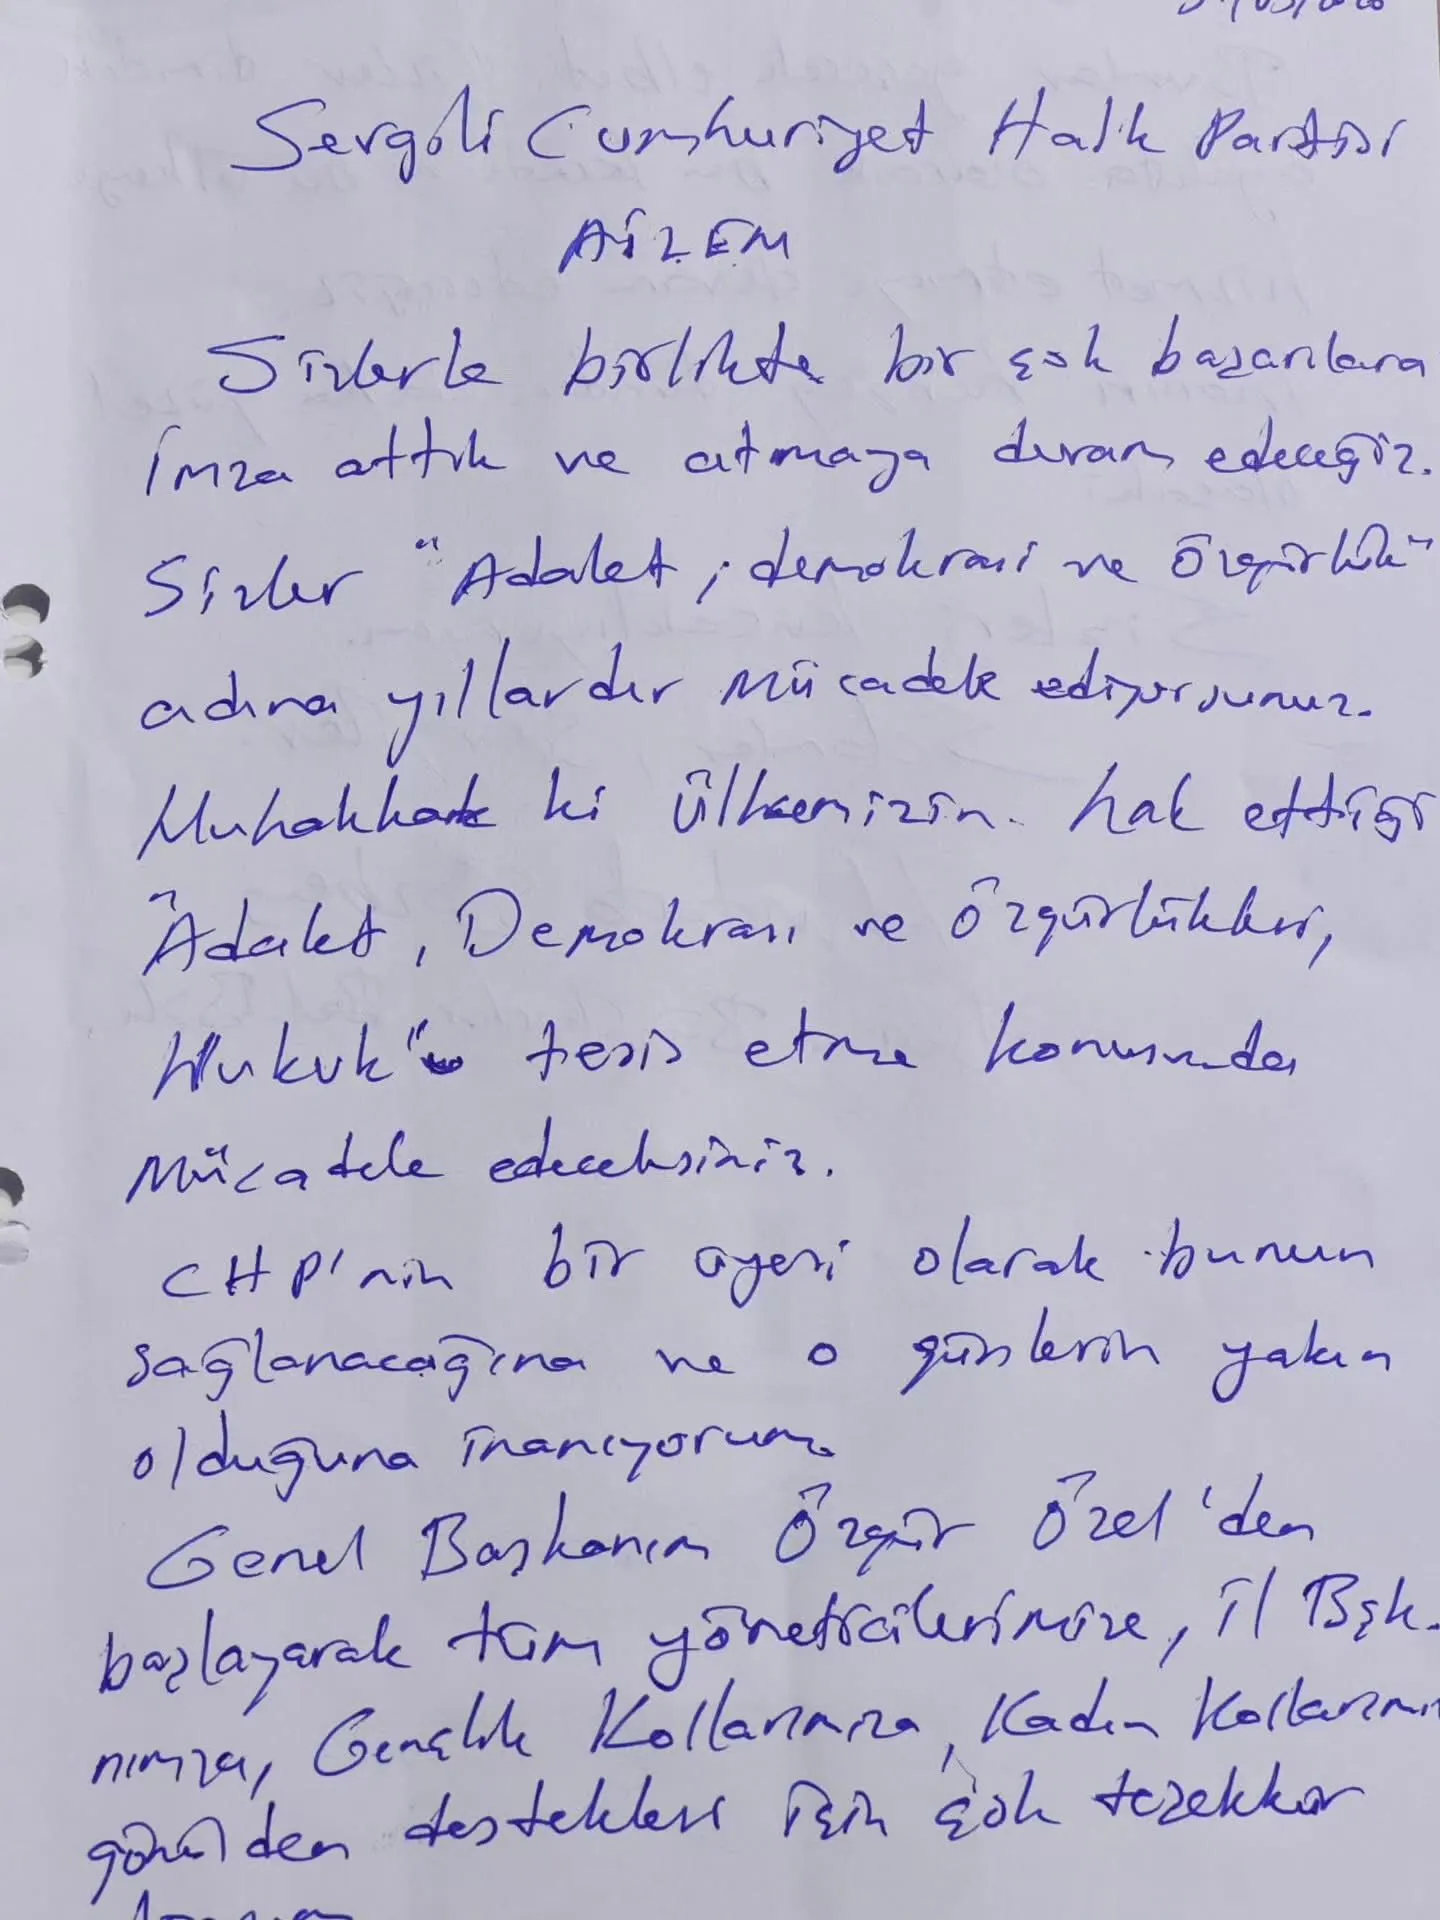 Sevgili Cumhuriyet Halk Partisi
AİLEM
Sizlerle birlikte bir çok başarılara
imza attık ve atmaya devam edeceğiz.
Sizler "Adalet, demokrasi ve özgürlük"
adına yıllardır mücadele ediyorsunuz.
Muhakkak ki ülkemizin hak ettiği
"Adalet, Demokrasi ve özgürlükler,
Hukuk"u tesis etme konusunda
mücadele edeceksiniz.
CHP'nin bir üyesi olarak bunun
sağlanacağına ve o günlerin yakın
olduğuna inanıyorum.
Genel Başkanım Özgür Özel'den
başlayarak tüm yöneticilerimize, il Bşk.
nımıza, Gençlik Kollarımıza, Kadın Kollarımı
gönülden destekleri için çok teşekkür